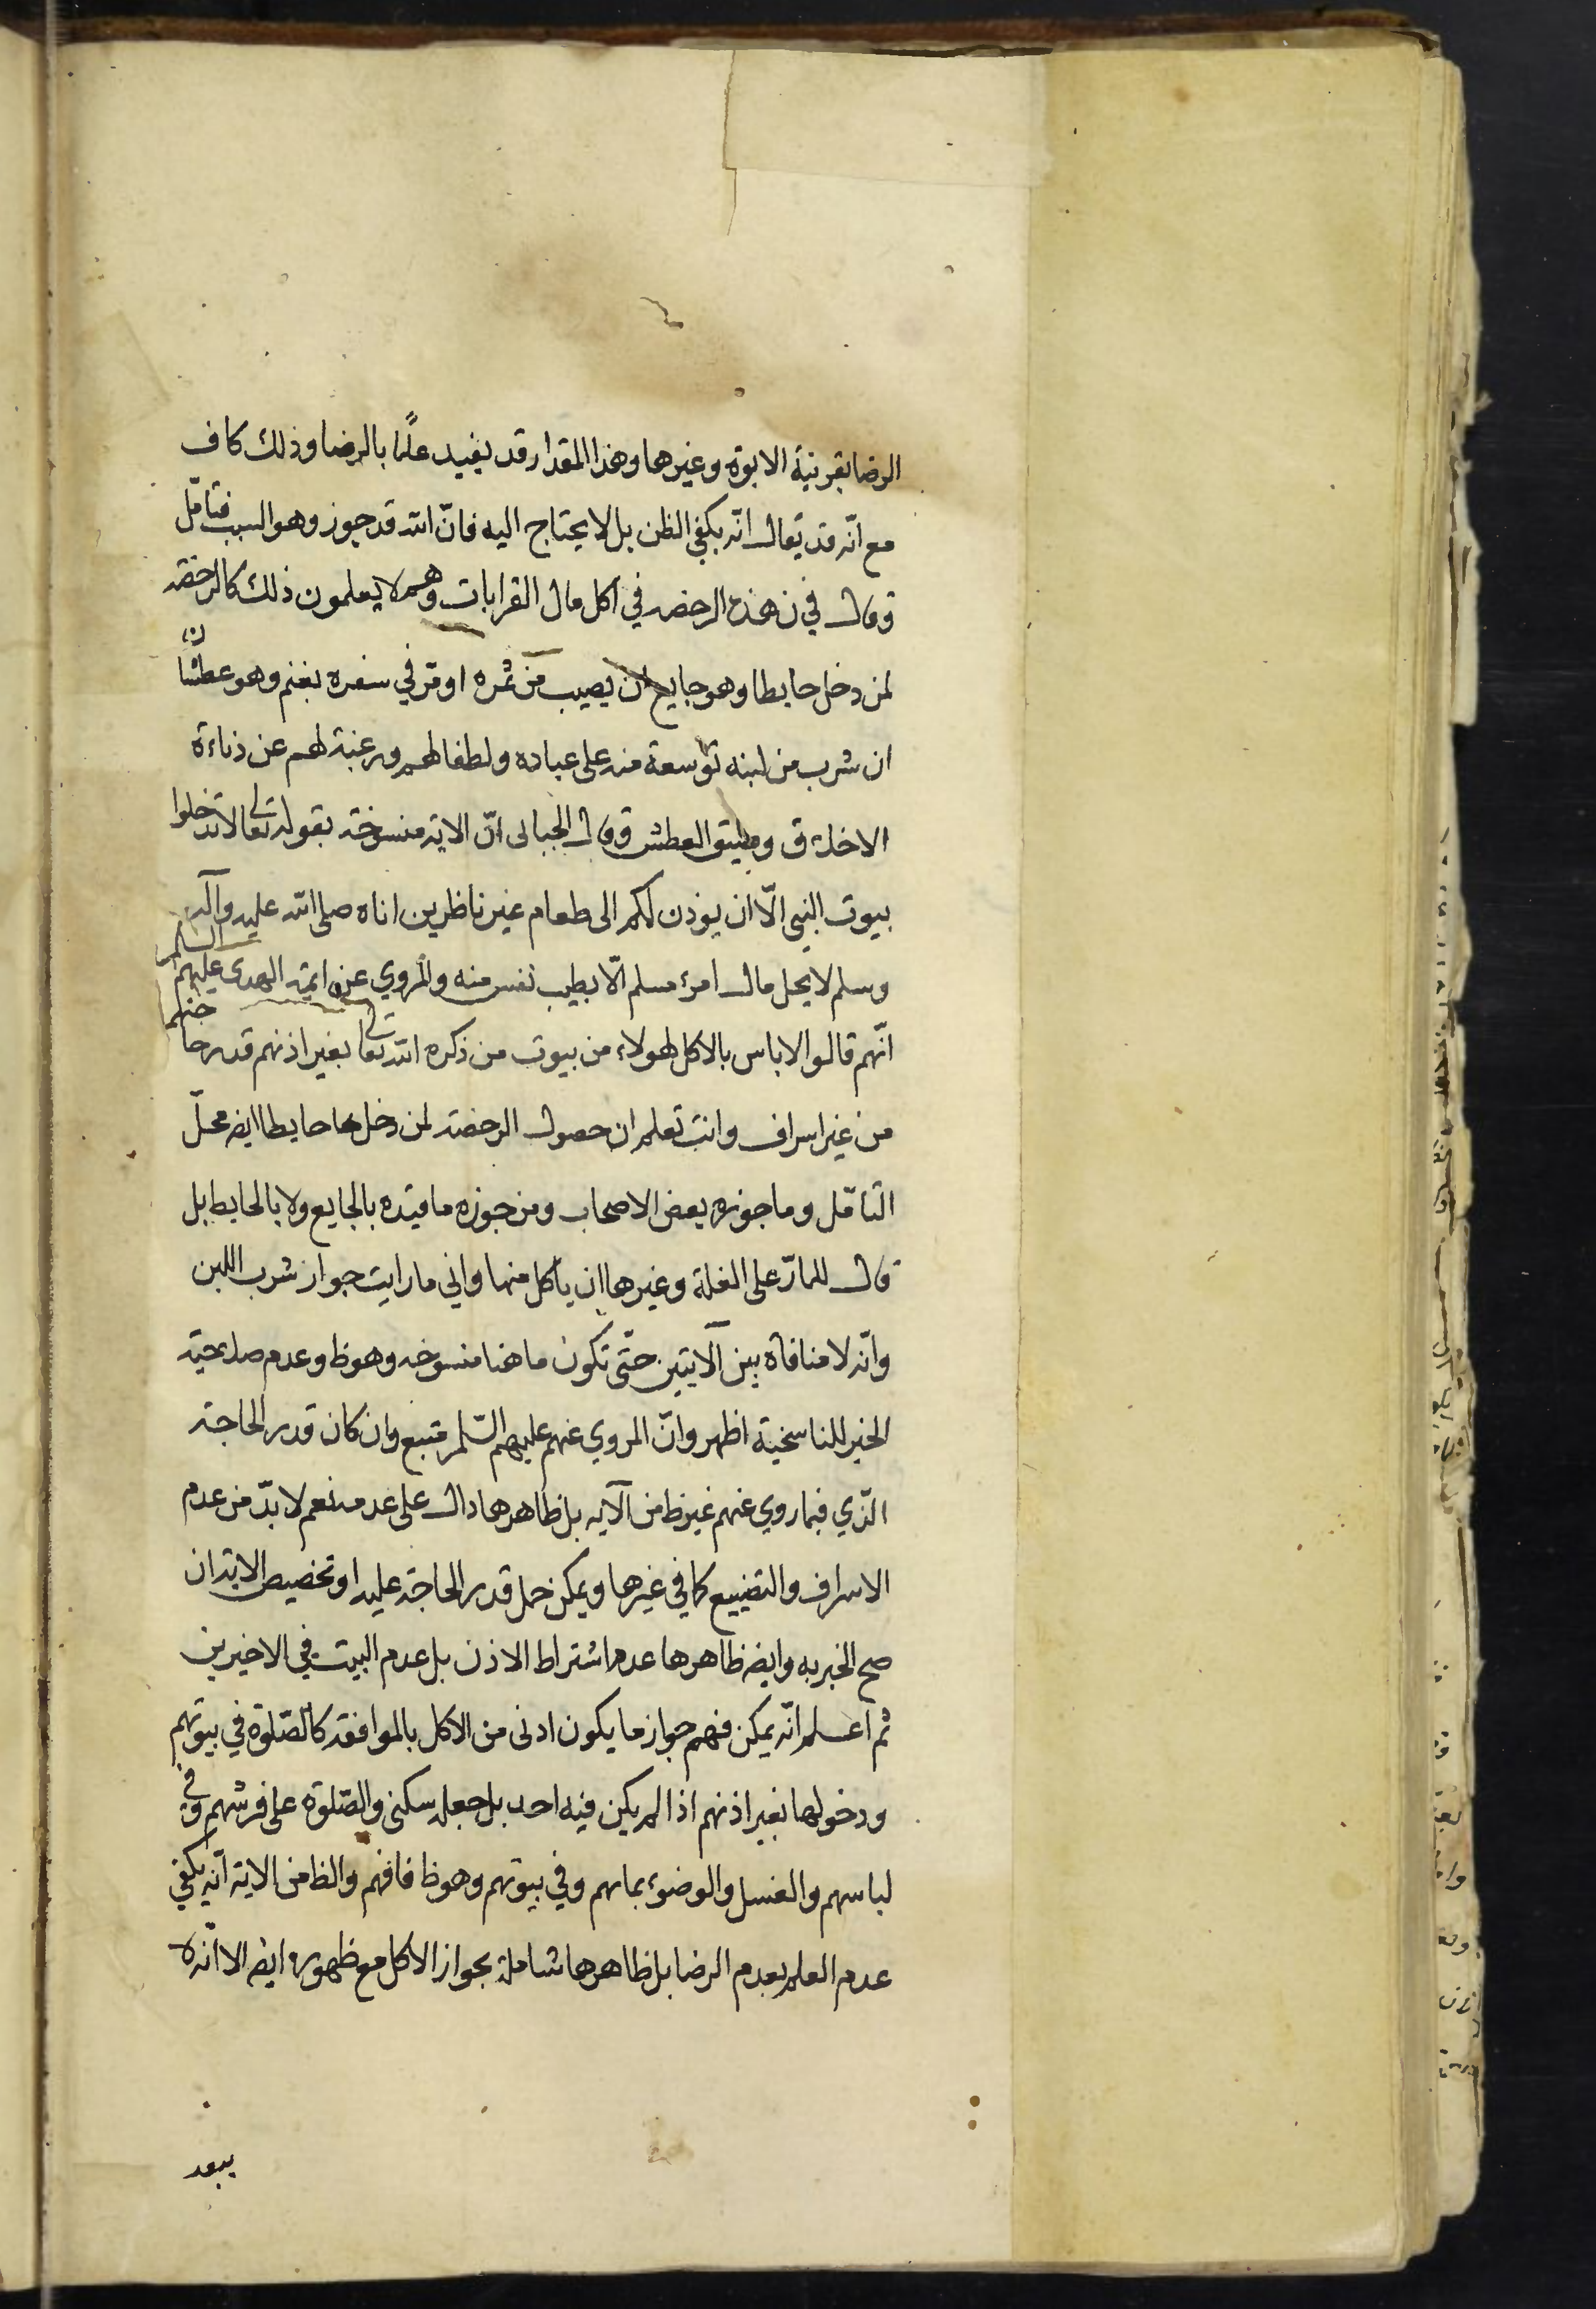 الرضا بقرينة الابوة وغيرها وهذا المقدار قد يفيد علمًا بالرضا وذلك كاف
مع انّه قد يقال انّه يكفي الظن بل لا يحتاج اليه فانّ الله قد جوز وهو السبب فتأمّل
وقال في ن هذه الرخصه في اكل مال القرابات وهم لا يعلمون ذلك كالرخصه
لمن دخل حايطا وهو جايع ان يصيب من ثمره او مرّ في سفره بغنم وهو عطشان
ان شرب من لبنه توسعة منه على عباده ولطفا لهم ورغبة لهم عن دناءة
الاخلاق وضيق العطش وقال الجبائى انّ الاية منسوخة بقوله تعالى لا تدخلوا
بيوت النبي الّا ان يوذن لكم الى طعام غير ناظرين اناه صلى الله عليه وآله
وسلم لا يحل مال امرء مسلم الّا بطيب نفس منه والمروي عن ائمة الهدى عليهم السلم
انّهم قالوا لا باس بالاكل لهولاء من بيوت من ذكره الله تعالى بغير اذنهم قدر حاجتهم
من غير اسراف وانت تعلم ان حصول الرخصة لمن دخل حايطا ايضا محلّ
التأمّل وما جوزه بعض الاصحاب ومن جوزه ما قيّده بالجايع ولا بالحايط بل
قال للمارّ على الغلة وغيرها ان ياكل منها واني ما رايت جواز شرب اللبن
وانّه لا منافاة بين الآيتين حتّى تكون ما هنا منسوخه وهو ظ وعدم صلاحية
الخبر للناسخية اظهر وانّ المروي عنهم عليهم السّلم متبع وان كان قدر الحاجة
الّذي فيما روي عنهم غير ظ من الآية بل ظاهرها دال على عدمه نعم لا بدّ من عدم
الاسراف والتضييع كما في غيرها ويمكن حمل قدر الحاجة عليه او تخصيص الاية ان
صح الخبر به وايضا ظاهرها عدم اشتراط الاذن بل عدم البيت في الاخيرين
ثم اعلم انّه يمكن فهم جواز ما يكون ادنى من الاكل بالموافقة كالصّلوة في بيوتهم
ودخولها بغير اذنهم اذا لم يكن فيه احد بل جعله سكنى والصّلوة على فرشهم وفي
لباسهم والغسل والوضوء بمائهم وفي بيوتهم وهو ظ فافهم والظ من الاية انّه يكفي
عدم العلم بعدم الرضا بل ظاهرها شاملة بجواز الاكل مع ظهوره ايضا الا انّه لا
يبعد